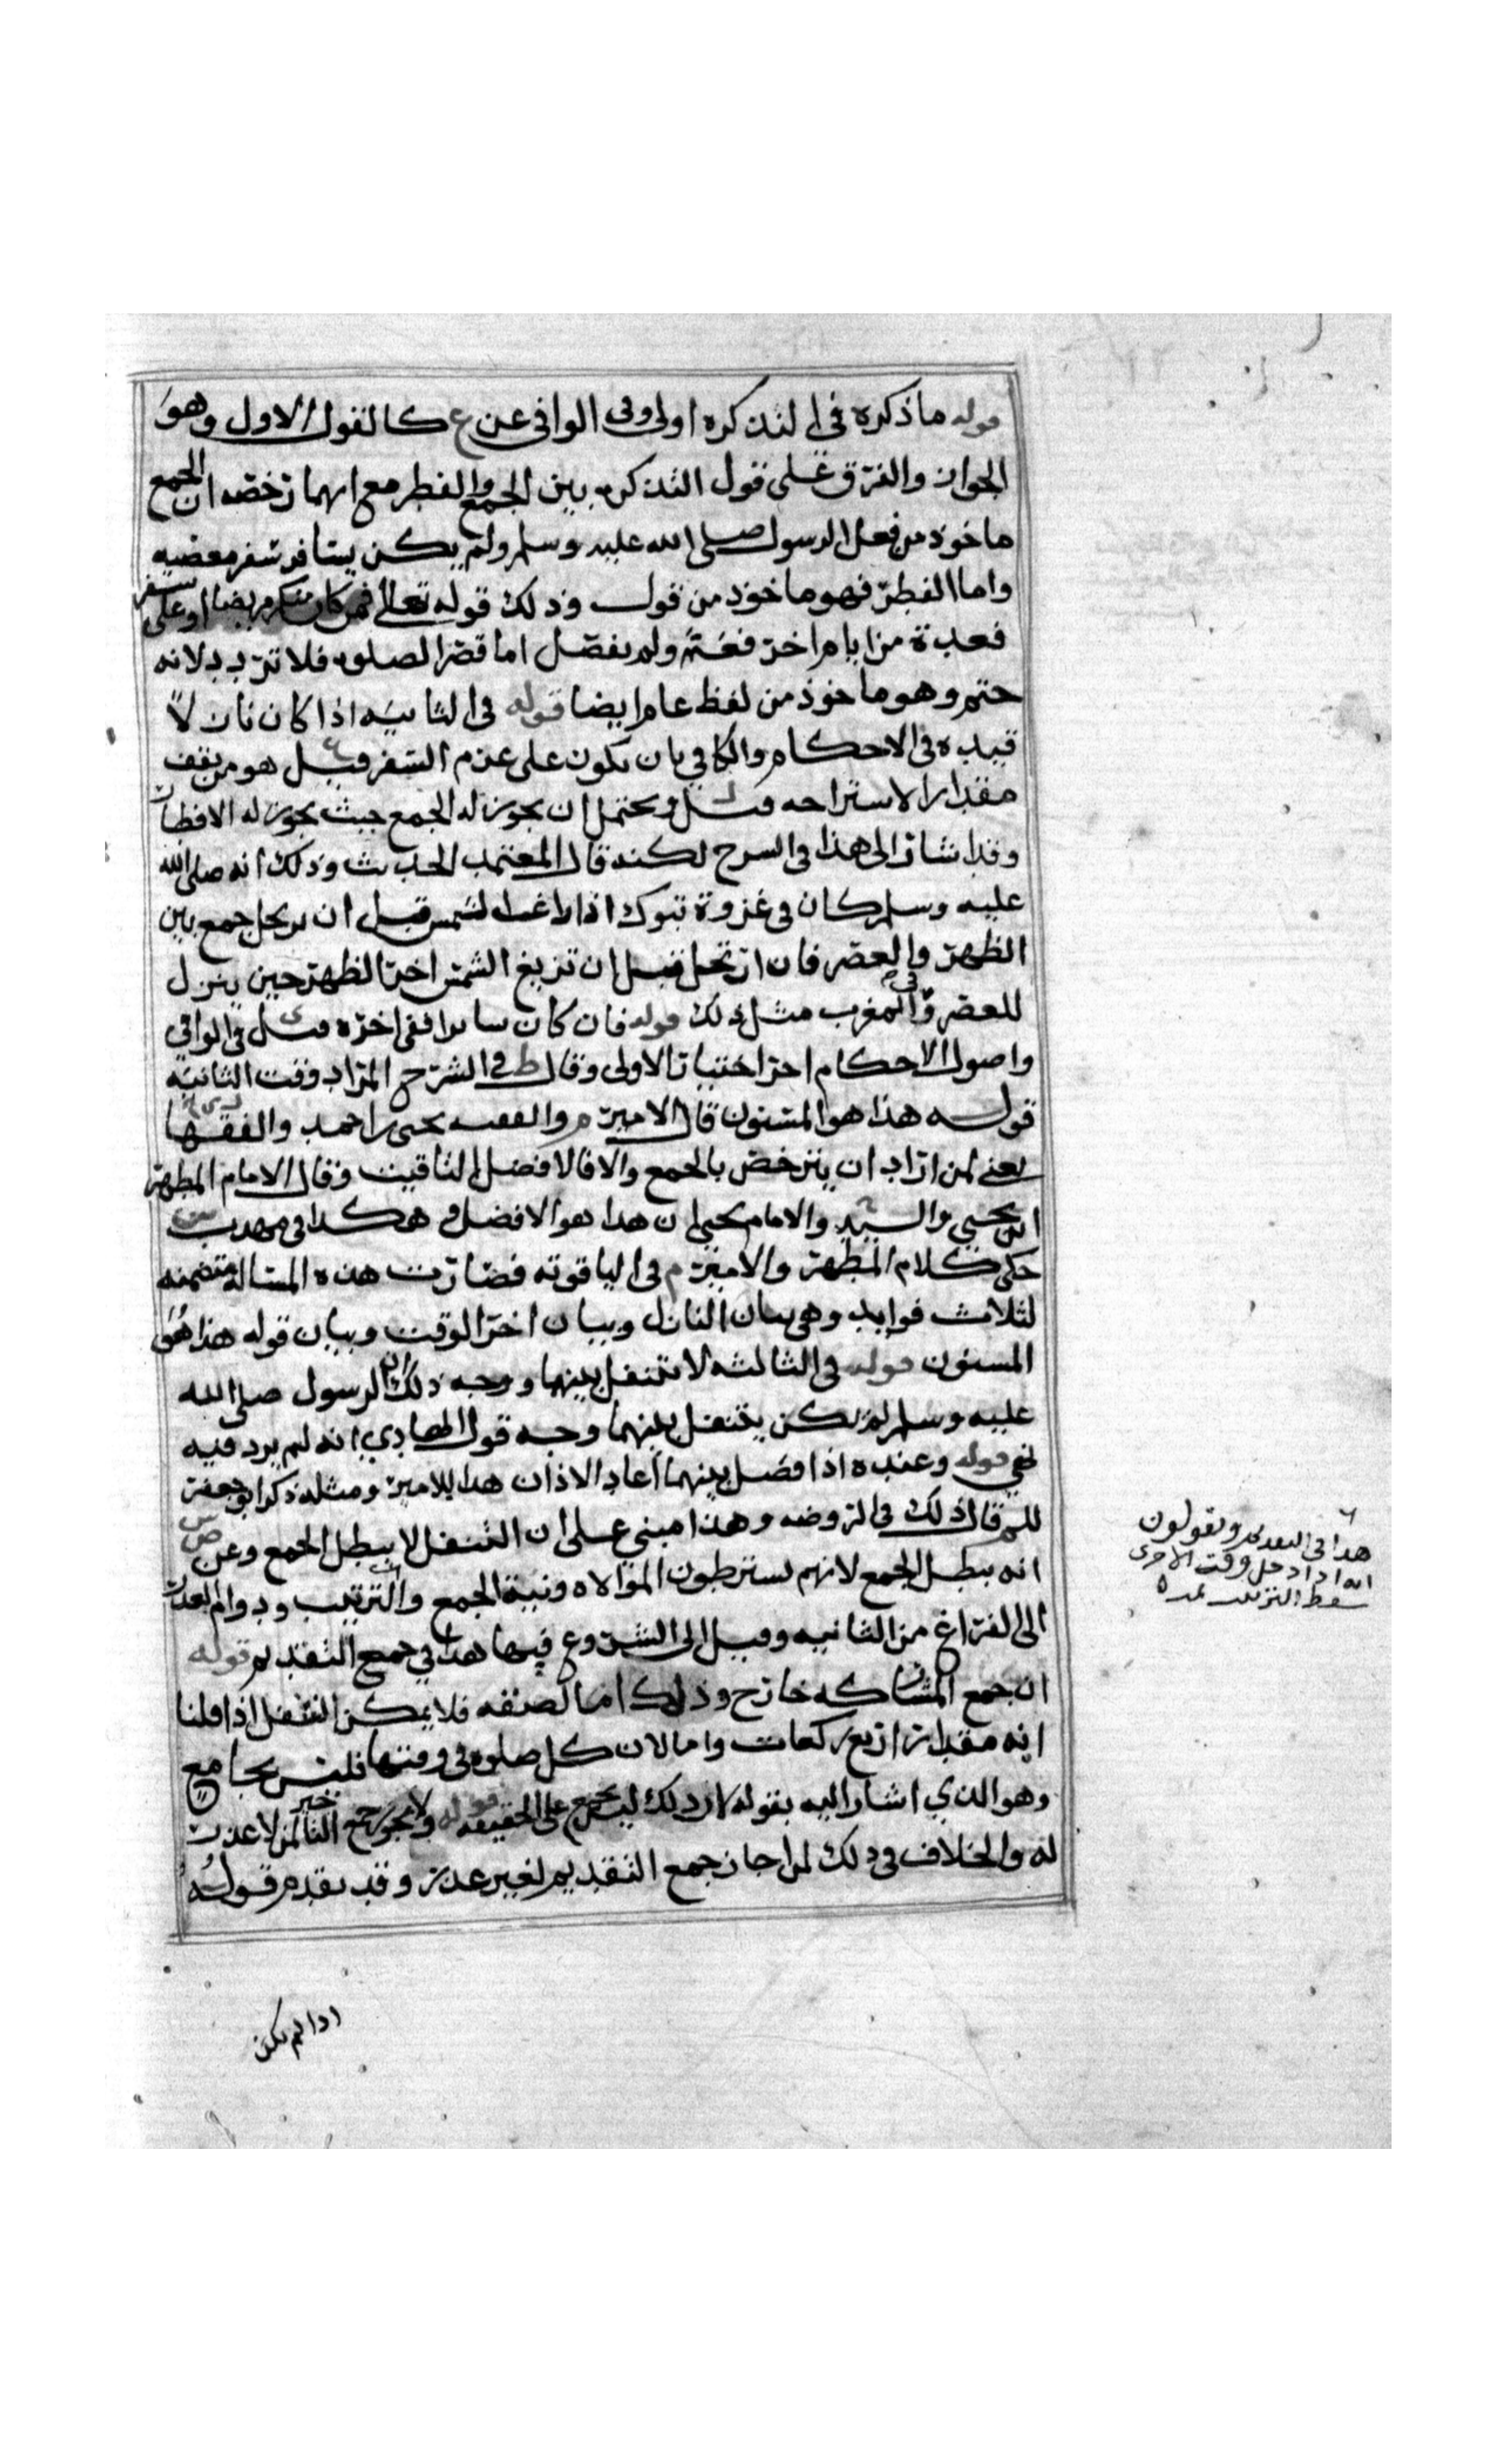 قوله ما ذكره في التذكره اولى وفي الوافي عن ع كالقول الاول وهو
الجواز والفرق على قول التذكره بين الجمع والفطر مع انهما رخصه ان الجمع
ماخوذ من فعل الرسول صلى الله عليه وسلم ولم يكن يسافر سفر معصيه
واما الفطر فهو ماخوذ من قول وذلك قوله تعالى فمن كان منكم مريضا او على سفر
فعدة من ايام اخر فعم ولم يفصل اما قصر الصلوه فلا ترد لانه
حتم وهو ماخوذ من لفظ عام ايضا قوله في الثانيه اذا كان نازلا
قيده في الاحكام والكافي بان يكون على عزم السفر قيل هو من يقف
مقدار الاستراحه قيل ويحتمل ان يجوز له الجمع حيث يجوز له الافطار
وقد اشار الى هذا في الشرح لكنه قال المعتمد الحديث وذلك انه صلى الله
عليه وسلم كان في غزوة تبوك اذا زاغت الشمس قبل ان يرتحل جمع بين
الظهر والعصر فان ارتحل قبل ان تزيغ الشمس اخر الظهر حين ينزل
للعصر وفي المغرب مثل ذلك قوله فان كان سايرا ففي اخره قيل في الوافي
واصول الاحكام اخر اختيار الاولى وقال ط في الشرح المراد وقت الثانيه
قوله هذا هو المسنون قال الامير م والفقيه يحيى بن احمد والفقها
يعني لمن اراد ان يترخص بالجمع والا فالافضل التاقيت وقال الامام المطهر
ابن يحيى والسيد والامام يحيى ان هذا هو الافضل هكذا في مهدب
حكى كلام المطهر والامير م في الياقوته فصارت هذه المسالة متضمنه
لثلاث فوايد وهي بيان النازل وبيان اخر الوقت وبيان قوله هذا هو
المسنون قوله في الثالثه لا يتنفل بينهما ووجه ذلك ان الرسول صلى الله
عليه وسلم لم يكن يتنفل بينهما وجه قول الهادي انه لم يرد فيه
نهي قوله وعنده اذا فصل بينهما اعاد الاذان هذا للامير ومثله ذكر ابو جعفر
قال ذلك في الروضه وهذا مبني على ان التنفل لا يبطل الجمع وعن ص
انه يبطل الجمع لانهم يشترطون الموالاه ونية الجمع والترتيب ودوام العذر
الى الفراغ من الثانيه وقيل الى الشروع فيها هذا في جمع التقديم قوله
ان جمع المشاركه خارج وذلك اما لضيقه فلا يمكن التنفل اذا قلنا
انه مقدار اربع ركعات واما لان كل صلوه في وقتها فليس بجامع
وهو الذي اشار اليه بقوله لان ذلك ليس بجمع على الحقيقه قوله ولا يجوز جمع التاخير لمن لا عذر
له والخلاف في ذلك لمن اجاز جمع التقديم لغير عذر وقد تقدم قوله
هذا في التقديم ويقولون
انه اذا دخل وقت الاخرى
سقط الترتيب
اذا لم يكن